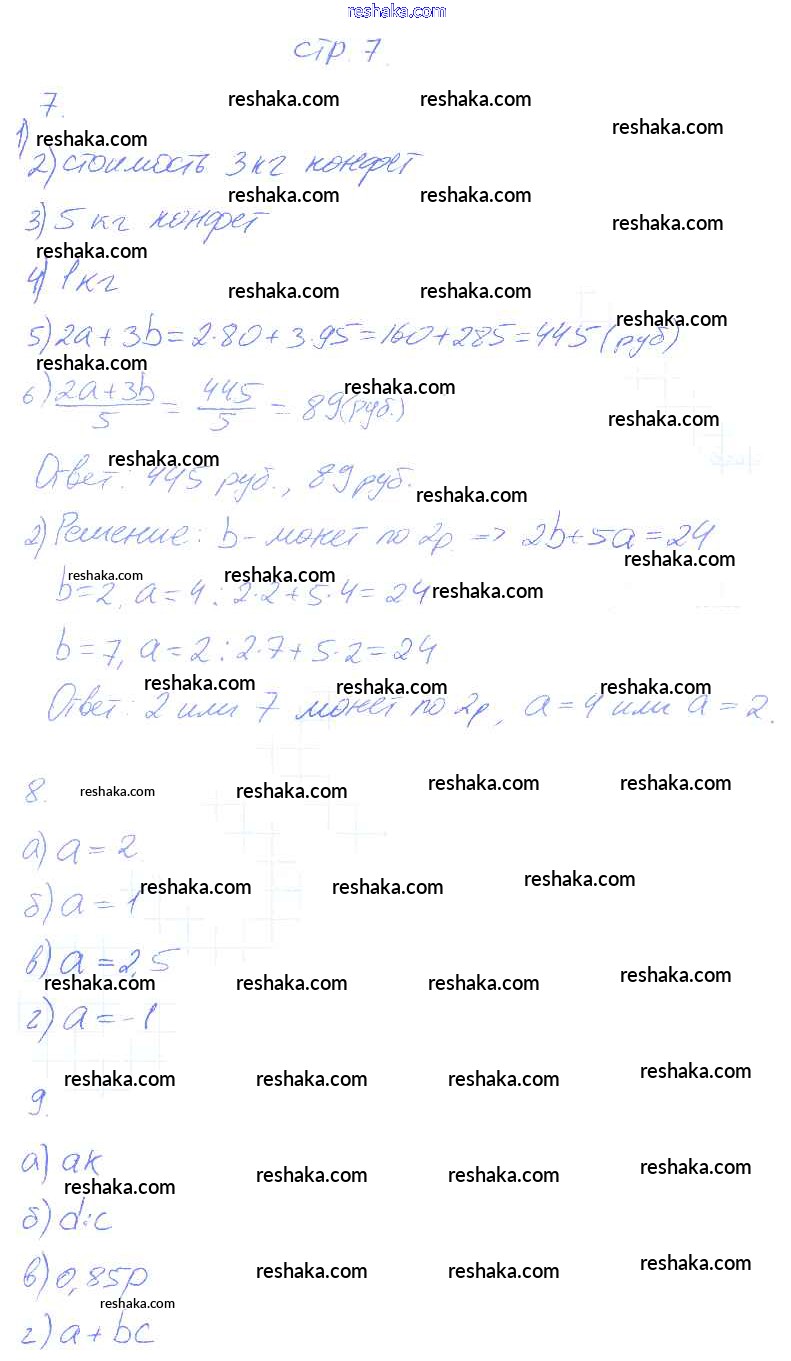 reshaka.com
стр. 7.
7.
reshaka.com reshaka.com reshaka.com
1) reshaka.com
2) стоимость 3 кг конфет
reshaka.com reshaka.com reshaka.com
3) 5 кг конфет
reshaka.com
4) 1 кг
reshaka.com reshaka.com
5) 2a + 3b = 2·80 + 3·95 = 160 + 285 = 445 (руб)
reshaka.com
reshaka.com
6) (2a+3b)/5 = 445/5 = 89 (руб.)
reshaka.com reshaka.com
Ответ: 445 руб., 89 руб.
reshaka.com reshaka.com
2) Решение: b - монет по 2р. => 2b + 5a = 24
reshaka.com reshaka.com reshaka.com
b = 2, a = 4 : 2·2 + 5·4 = 24
reshaka.com
b = 7, a = 2 : 2·7 + 5·2 = 24
reshaka.com reshaka.com reshaka.com
Ответ: 2 или 7 монет по 2р, a = 4 или a = 2.
8.
reshaka.com reshaka.com reshaka.com reshaka.com
а) a = 2.
reshaka.com reshaka.com reshaka.com
б) a = 1
в) a = 2,5
reshaka.com reshaka.com reshaka.com reshaka.com
г) a = -1
reshaka.com reshaka.com reshaka.com reshaka.com
9.
а) ak
reshaka.com reshaka.com reshaka.com reshaka.com
б) d:c
в) 0,85p
reshaka.com reshaka.com reshaka.com
reshaka.com
г) a + bc